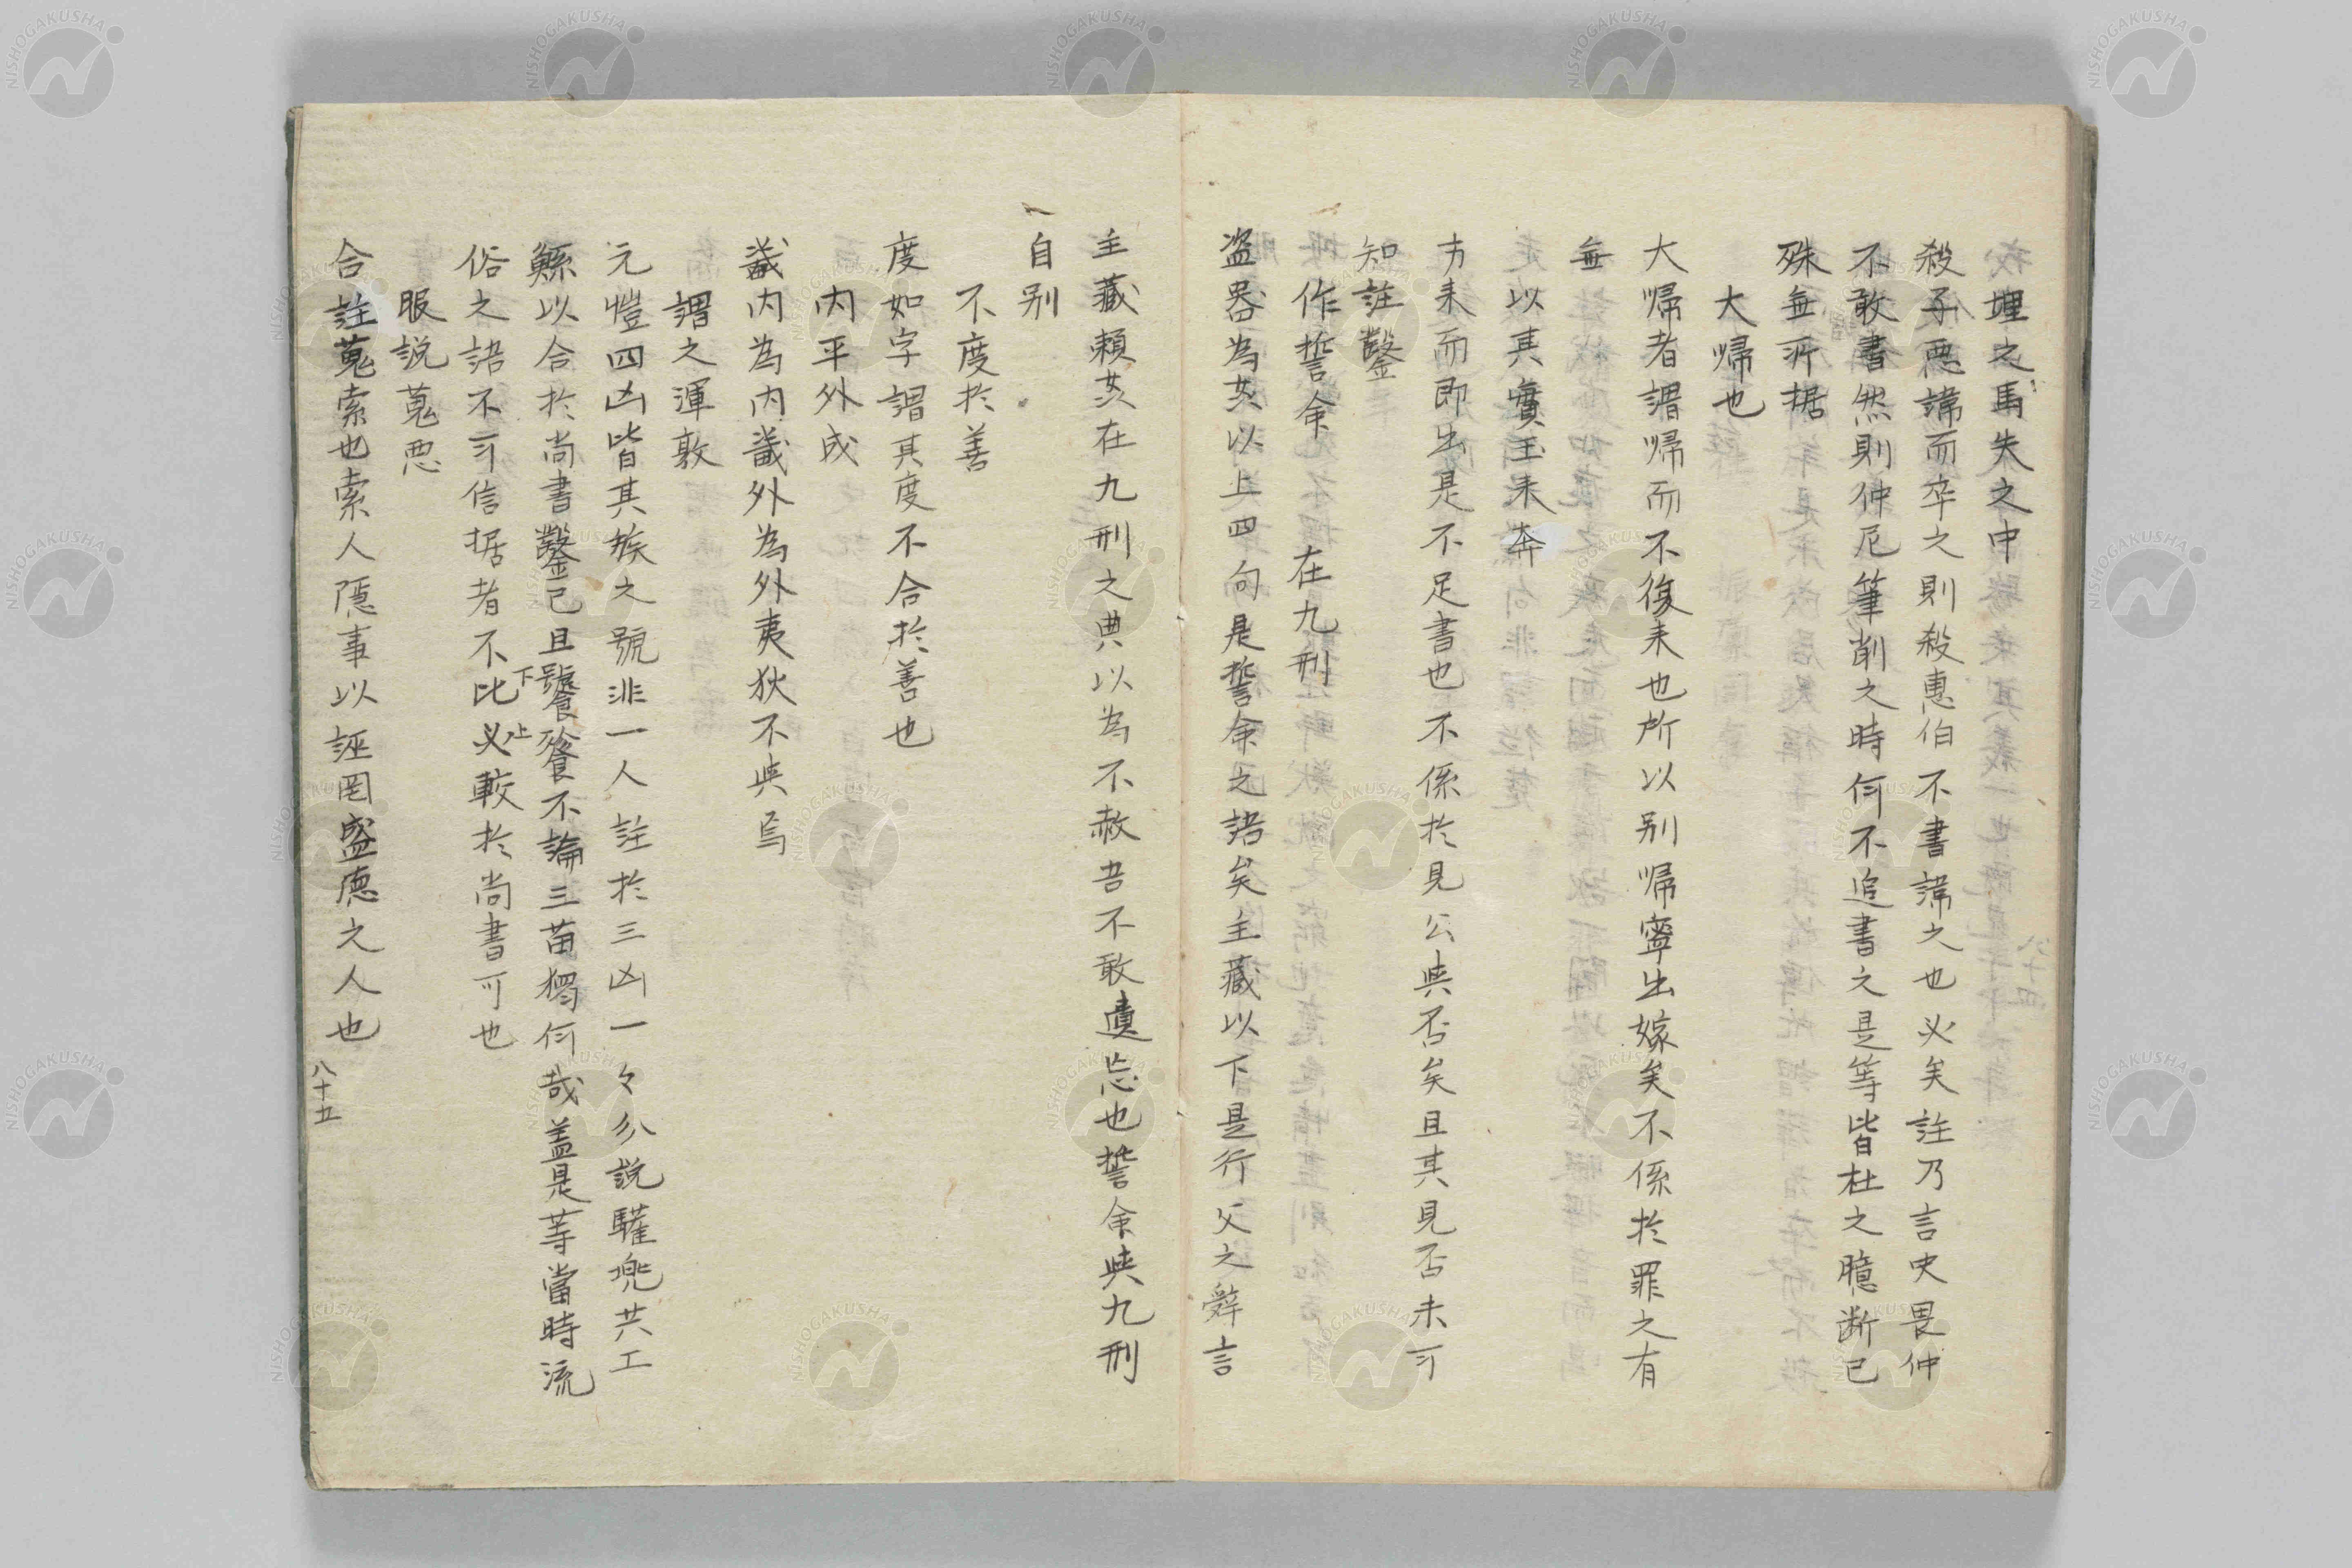 埋之馬矢之中
殺子悪諱而卒之則殺惠伯不書諱之也必矣註乃言史畏仲
不敢書然則仲尼筆削之時何不追書之是等皆杜之臆断已
殊無所据
大帰也
大帰者謂帰而不復来也所以别帰寧出嫁矣不係於罪之有
無
以其寶玉来奔
方来而即出是不足書也不係於見公與否矣且其見否未可
知註鑿
作誓命 在九刑
盗器為姦以上四句是誓命之語矣主藏以下是行父之辭言
主藏頼姦在九刑之典以為不赦吾不敢遺忘也誓命與九刑
自别
不度於善
度如字謂其度不合於善也
内平外成
諴内為内諴外為外夷狄不與焉
謂之渾敦
元愷四凶皆其族之號非一人註於三凶一々分説驩兜共工
鯀以合於尚書鑿已且饕餮不論三苗獨何哉盖是等當時流
俗之語不可信据者不比下必上較於尚書可也
服説蒐慝
合註蒐索也索人隠事以誣罔盛徳之人也
八十五
NISHOGAKUSHA